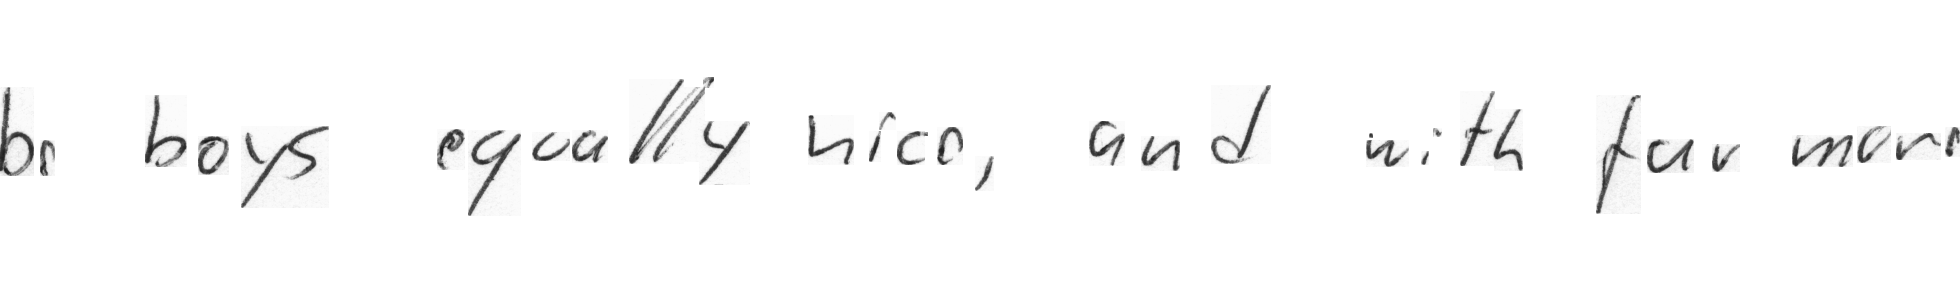 be boys equally nice, and with far more